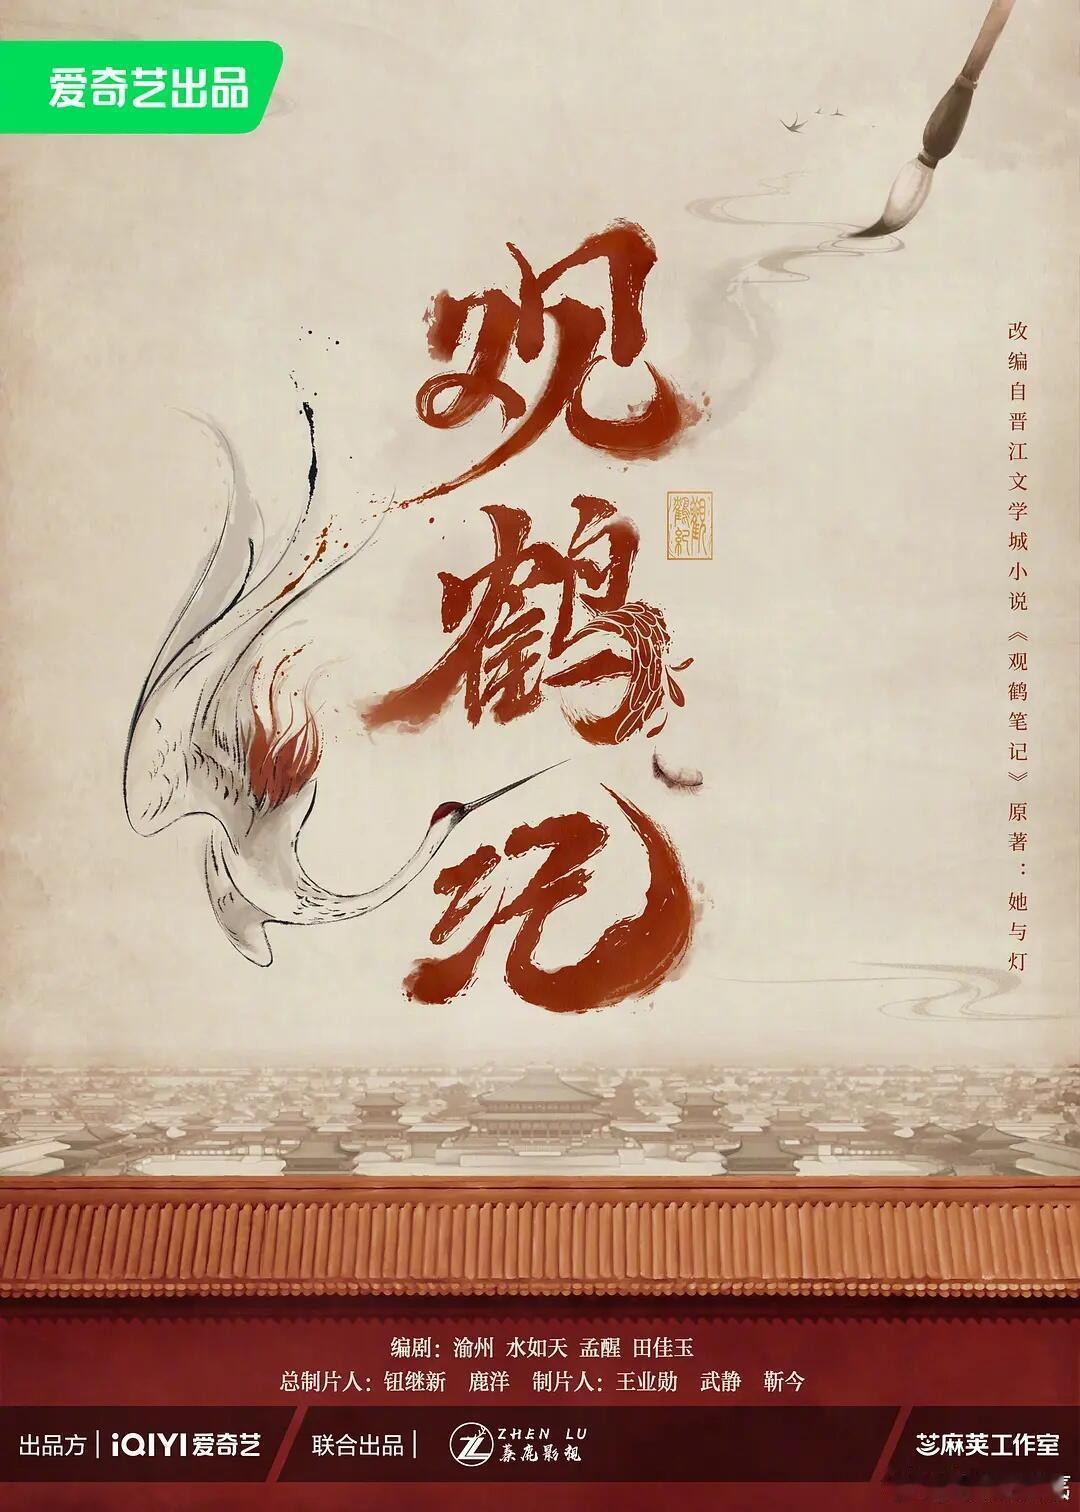 爱奇艺出品
观鹤记
觀鶴紀
改编自晋江文学城小说《观鹤笔记》原著：她与灯
编剧：渝州 水如天 孟醒 田佳玉
总制片人：钮继新 鹿洋 制片人：王业勋 武静 靳今
出品方 | iQIYI 爱奇艺 联合出品 | ZHEN LU 蓁鹿影视 芝麻荚工作室